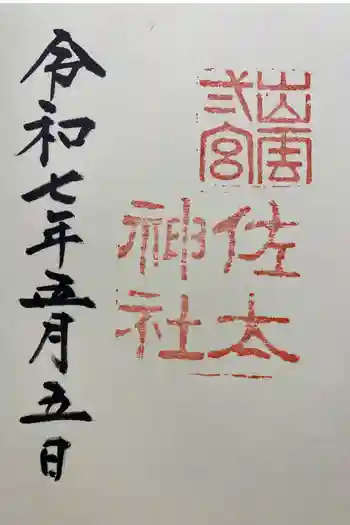 出雲
弎宮
佐太
神社
令和七年五月五日